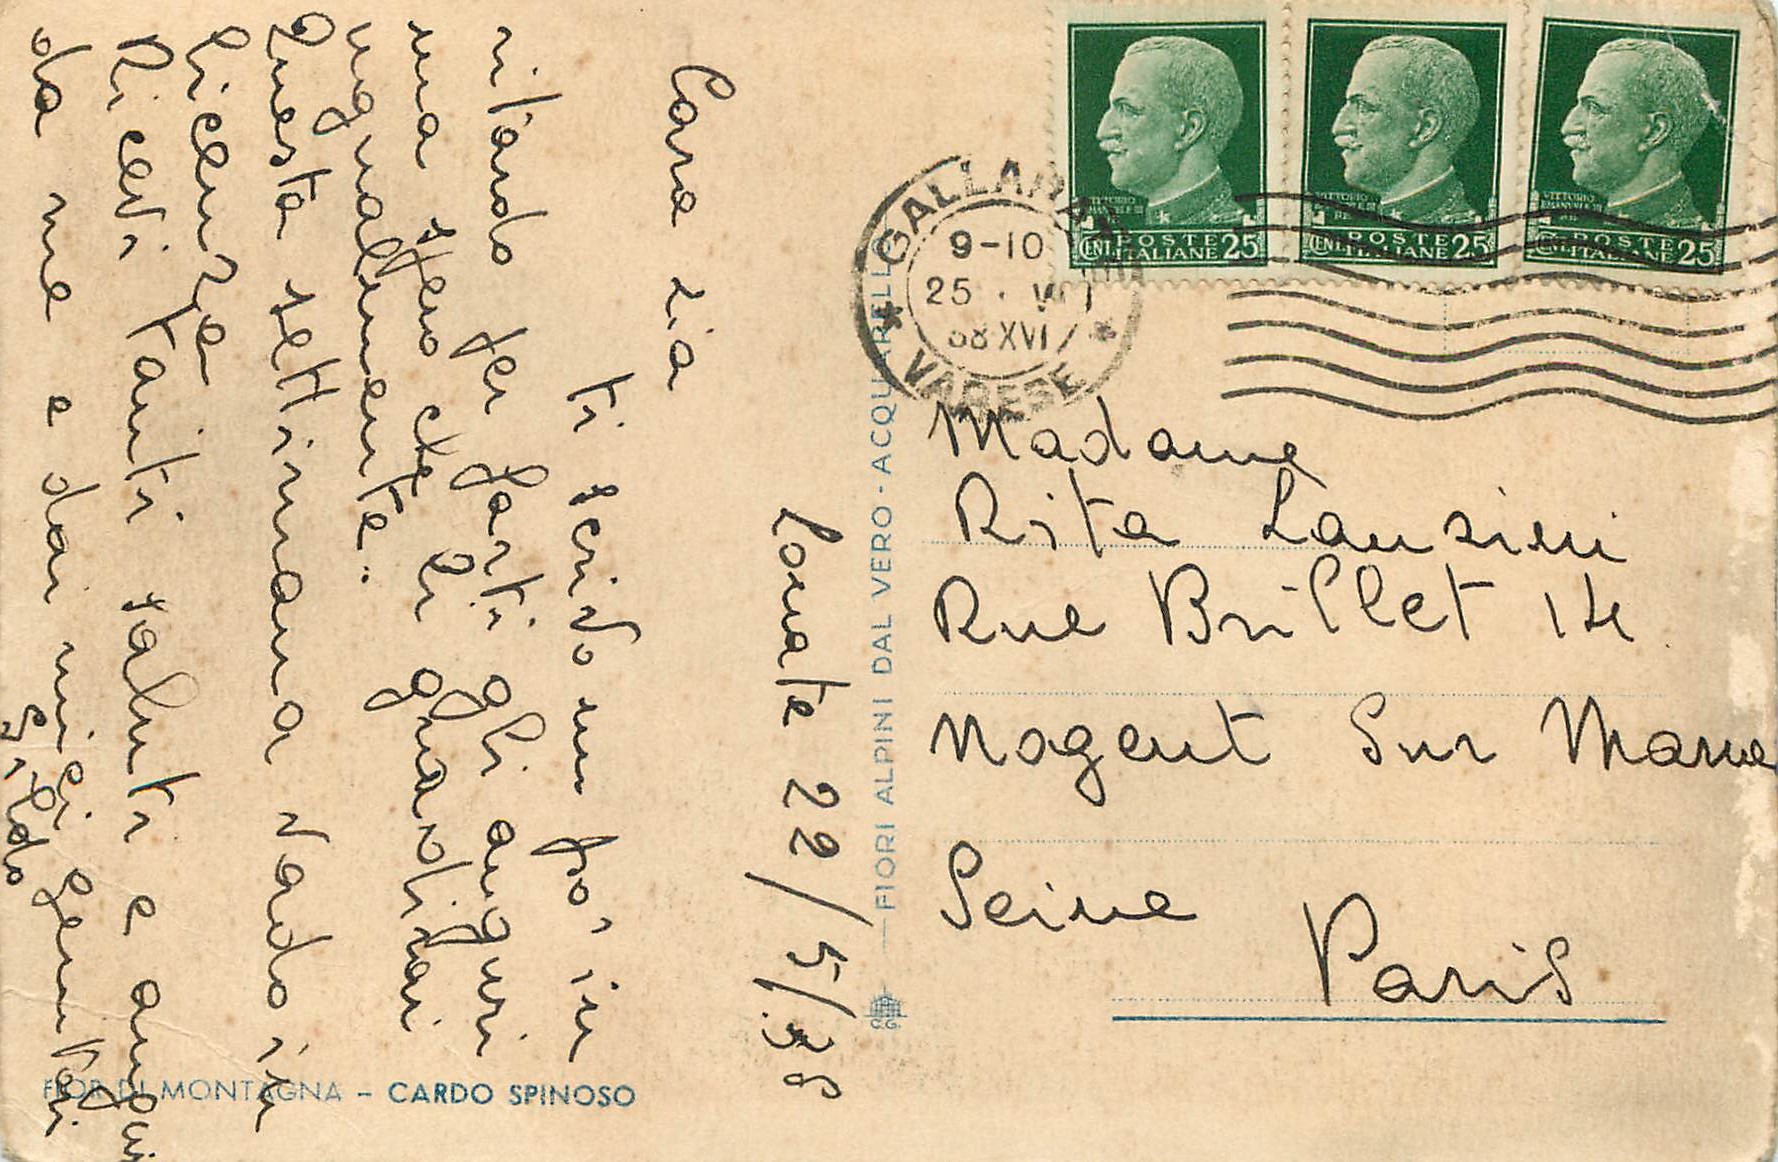 Lonate 22/5/38
Cara zia
ti scrivo un po' in
ritardo per farti gli auguri
ma spero che li gradirai
ugualmente.
Questa settimana vado in
licenza
Ricevi tanti saluti e auguri
da me e dai miei genitori
Gildo
POSTE ITALIANE
CENT. 25
VITTORIO EMANUELE III RE
POSTE ITALIANE
CENT. 25
VITTORIO EMANUELE III RE
POSTE ITALIANE
CENT. 25
VITTORIO EMANUELE III RE
GALLARATE
9-10
25 · VII
38 XVI
VARESE
Madame
Rita Lanzini
Rue Brillet 14
Nogent Sur Marne
Seine
Paris
FIORI ALPINI DAL VERO - ACQUARELLO
C.G.
FIOR DI MONTAGNA – CARDO SPINOSO